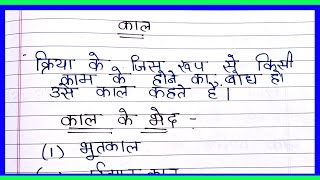 काल
क्रिया के जिस रूप से किसी
काम के होने का बोध हो
उसे काल कहते हैं।
काल के भेद -
(1) भूतकाल